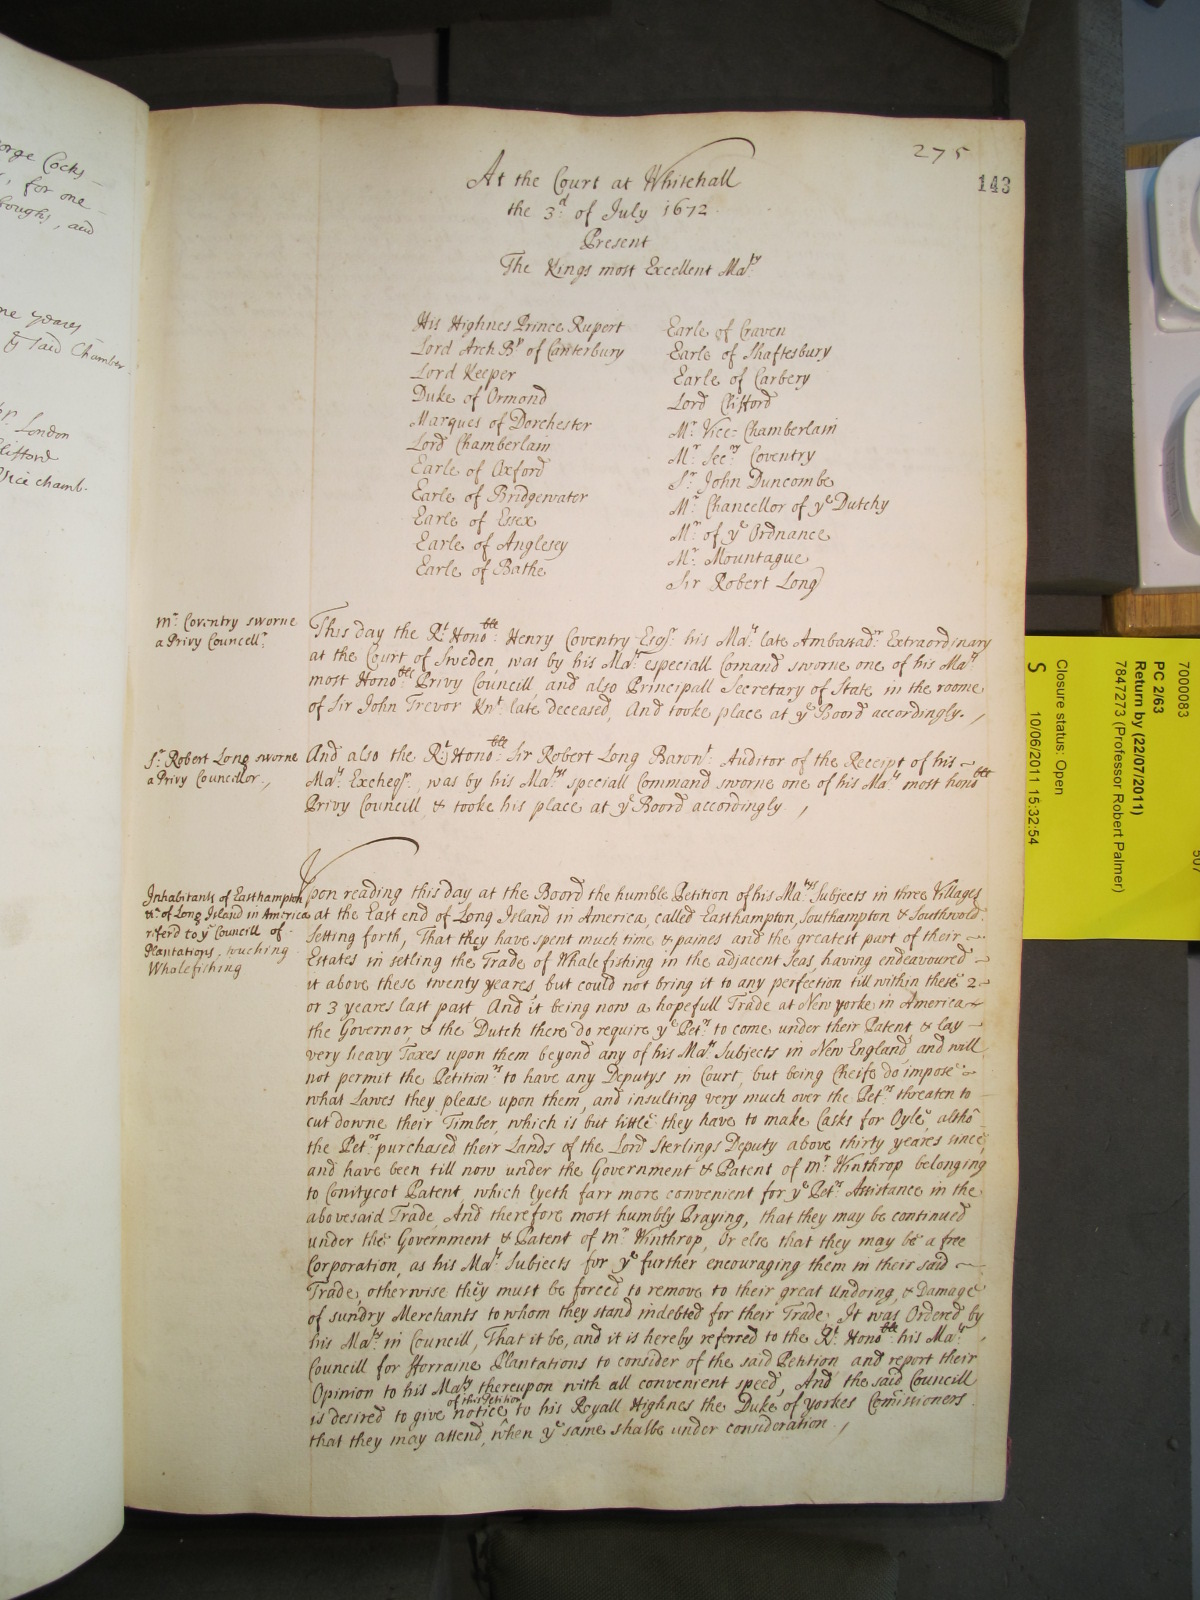 orge Cocks
, for one
boughs, and
me yeares
yͤ said Chamber
London
Clifford
Vice chamb.
275
143
At the Court at Whitehall
the 3ᵈ of July 1672
Present
The Kings most Excellent Maᵗʸ
His Highnes Prince Rupert
Lord Arch Bᵖ of Canterbury
Lord Keeper
Duke of Ormond
Marques of Dorchester
Lord Chamberlain
Earle of Oxford
Earle of Bridgewater
Earle of Essex
Earle of Anglesey
Earle of Bathe
Earle of Craven
Earle of Shaftesbury
Earle of Carbery
Lord Clifford
Mʳ Vice-Chamberlain
Mʳ Secʳʸ Coventry
Sʳ John Duncombe
Mʳ Chancellor of yᵉ Dutchy
Mʳ of yᵉ Ordnance
Mʳ Mountague
Sir Robert Long
mʳ Coventry sworne
a Privy Councellʳ
This day the Rᵗ Honoᵇˡᵉ Henry Coventry Esqʳ his Maᵗˢ late Ambassadʳ Extraordinary
at the Court of Sweden, was by his Maᵗˢ especiall Comand sworne one of his Maᵗˢ
most Honoᵇˡᵉ Privy Councill, and also Principall Secretary of State in the roome
of Sir John Trevor Knᵗ late deceased, And tooke place at yᵉ Boord accordingly.
Sʳ Robert Long sworne
a Privy Councellor
And also the Rᵗ Honoᵇˡᵉ Sir Robert Long Baronᵗ Auditor of the Receipt of his
Maᵗˢ Excheqʳ, was by his Maᵗˢ speciall Command sworne one of his Maᵗˢ most honoᵇˡᵉ
Privy Councill & tooke his place at yᵉ Boord accordingly
Inhabitants of Easthampton
&ᶜ of Long Island in America
referd to yᵉ Councill of
Plantations, touching
Whalefishing
Upon reading this day at the Boord the humble Petition of his Maᵗˢ Subjects in three Villages
at the East end of Long Island in America, called Easthampton, Southampton & Southwold
Setting forth, That they have spent much time & paines and the greatest part of their
Estates in setling the Trade of Whalefishing in the adjacent Seas, having endeavoured
it above these twenty yeares, but could not bring it to any perfection till within these 2
or 3 yeares last past. And it being now a hopefull Trade at New yorke in America
the Governor, & the Dutch there do require yᵉ Petʳˢ to come under their Patent, & lay
very heavy Taxes upon them beyond any of his Maᵗˢ Subjects in New England and will
not permit the Petitionʳˢ to have any Deputys in Court, but being Cheife do impose
what Lawes they please upon them, and insulting very much over the Petʳˢ threaten to
cut downe their Timber, which is but little they have to make Casks for Oyle, altho
the Petʳˢ purchased their Lands of the Lord Sterlings Deputy above thirty yeares since,
and have been till now under the Government & Patent of mʳ Winthrop belonging
to Conitycot Patent, which lyeth farr more convenient for yᵉ Petʳˢ Assistance in the
abovesaid Trade And therefore most humbly Praying, that they may be continued
under the Government & Patent of mʳ Winthrop, Or else that they may be a free
Corporation, as his Maᵗˢ Subjects for yᵉ further encouraging them in their said
Trade, otherwise they must be forced to remove to their great undoing, & Damage
of sundry Merchants to whom they stand indebted for their Trade. It was Ordered by
his Maᵗʸ in Councill, That it be, and it is hereby referred to the Rᵗ Honoᵇˡᵉ his Maᵗˢ
Councill for fforraine Plantations to consider of the said Petition and report their
Opinion to his Maᵗʸ thereupon with all convenient speed, And the said Councill
of this Petition
is desired to give notice to his Royall Highnes the Duke of yorkes Comissioners
that they may attend, when yᵉ same shalbe under consideration
7000083
507
PC 2/63
Return by (22/07/2011)
7847273 (Professor Robert Palmer)
Closure status: Open
S 10/06/2011 15:32:54